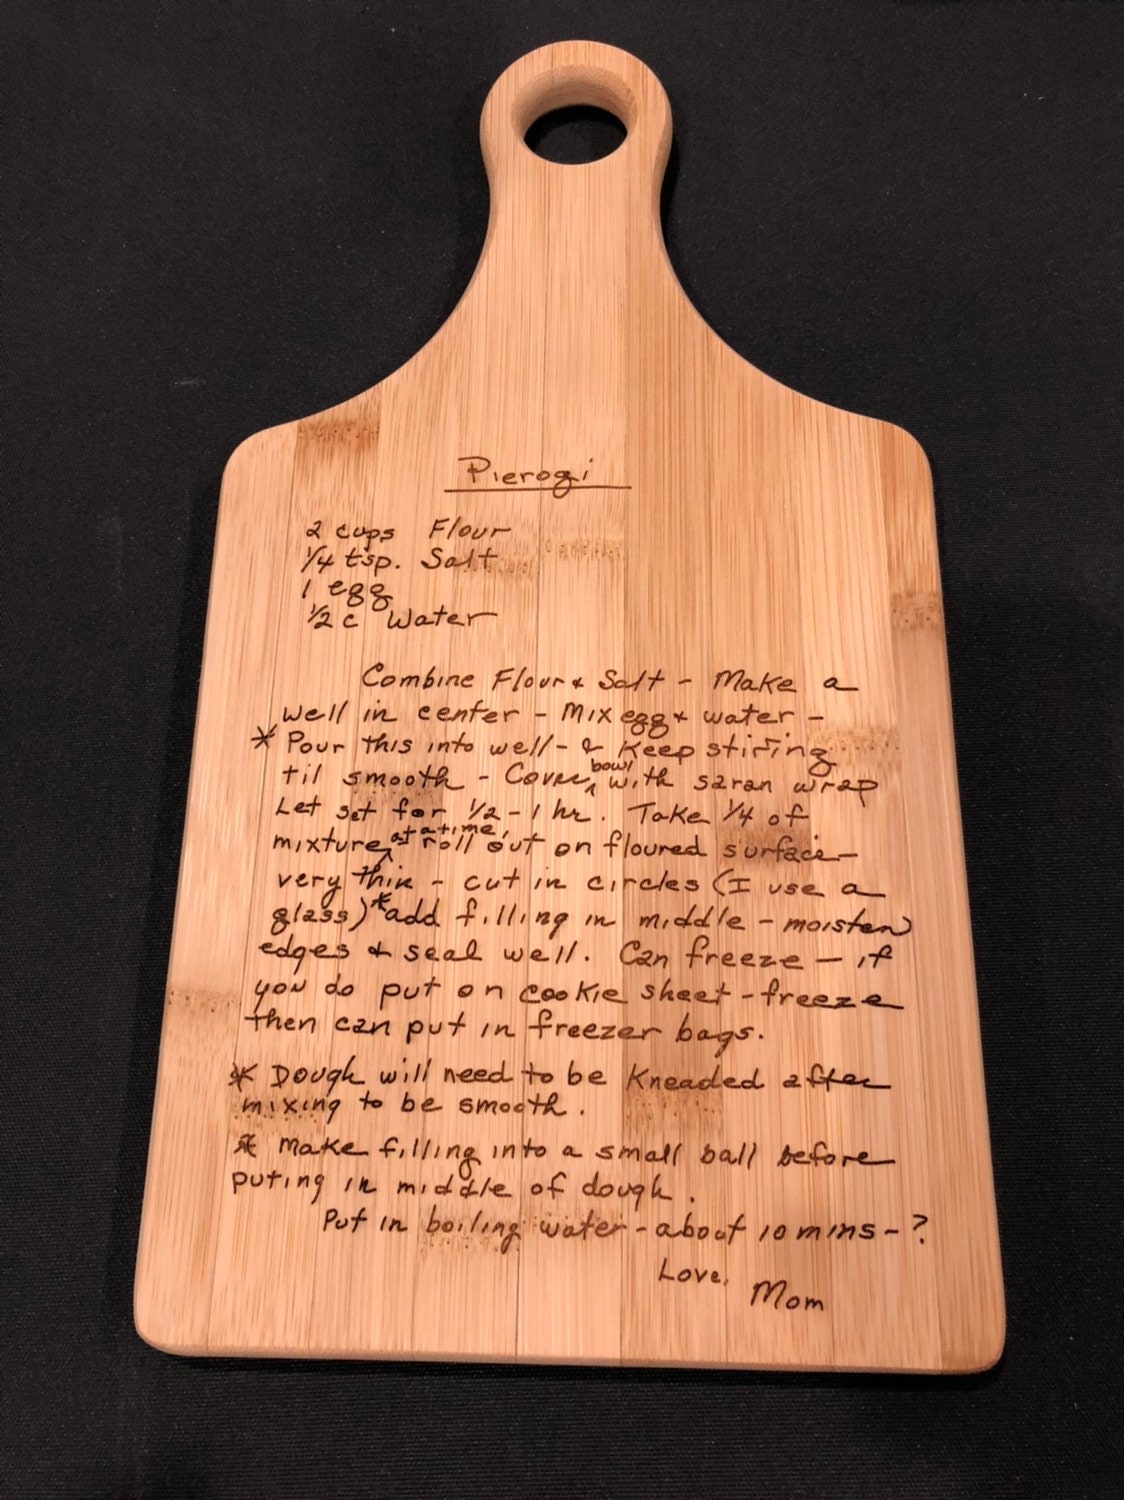 Pierogi
2 cups Flour
1/4 tsp. Salt
1 egg
1/2 c Water
Combine Flour & Salt - Make a
well in center - Mix egg & water -
* Pour this into well - & Keep stiring
til smooth - Cover bowl with saran wrap
Let set for 1/2 - 1 hr. Take 1/4 of
mixture at a time, roll out on floured surface -
very thin - cut in circles (I use a
glass) * add filling in middle - moisten
edges & seal well. Can freeze - if
you do put on cookie sheet - freeze
then can put in freezer bags.
* Dough will need to be Kneaded after
mixing to be smooth.
* Make filling into a small ball before
puting in middle of dough.
Put in boiling water - about 10 mins - ?
Love,
Mom